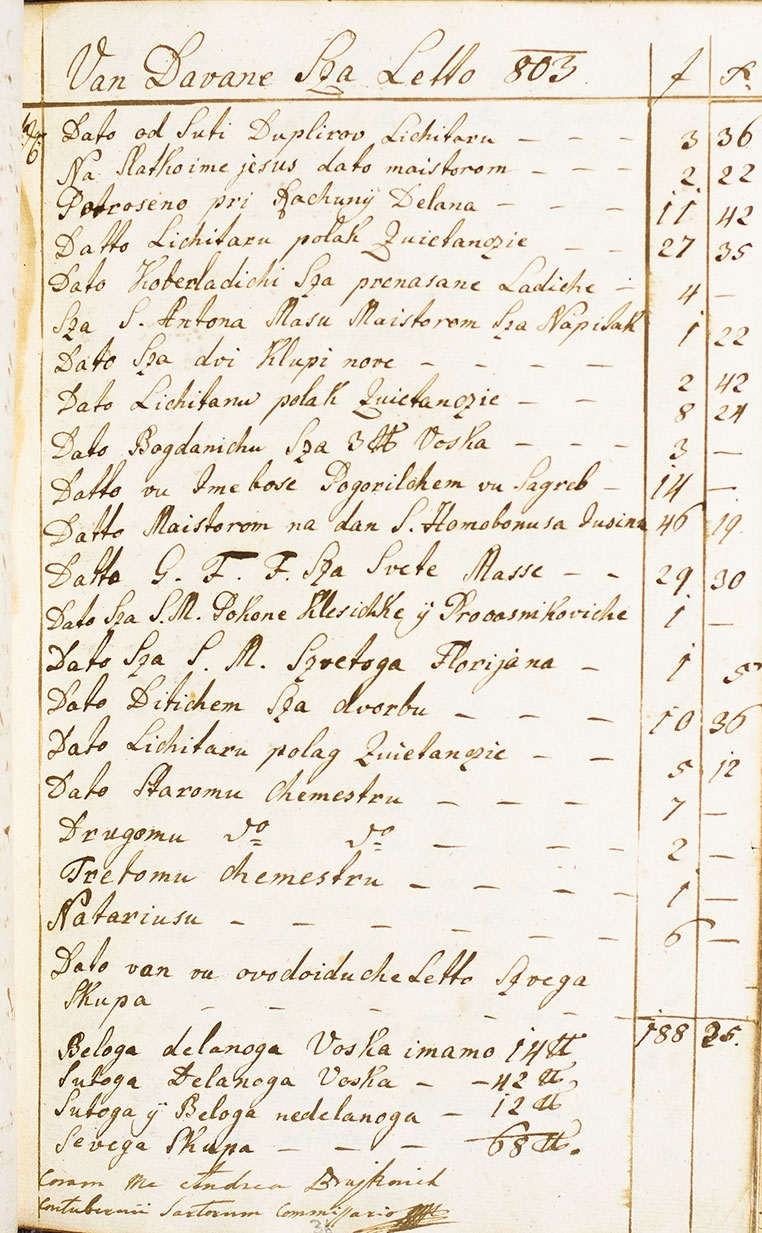 Van Davane Sza Letto 803. f x.
Dato od Suti Duplirov Lichitaru - - - 3 36
Na Slatkoime jesus dato maistorom - - - 2 22
Potroseno pri Rachuny Delana - - - 11 42
Datto Lichitaru polak Quietanczie - - 27 35
Dato Koberladichi Sza prenasane Ladiche - 4 -
Sza S. Antona Masu Maistorom Sza Napitak 1 22
Dato Sza dvi Klupi nove - - - - 2 42
Dato Lichitaru polak Quietanczie - - 8 24
Dato Bogdanichu Sza 3 ℔ Voska - - - 3 -
Datto vu Ime bose Pogorilchem vu Sagreb - 14 -
Datto Maistorom na dan S. Homobonusa 46 19
Datto G. F. F. Sza Svete Masse - - 29 30
Dato Sza S. M. Pokone Klesichke ÿ 1 -
Dato Sza S. M. Szvetoga Florijana - 1 5
Dato Ditichem Sza dvorbu - - - 10 36
Dato Lichitaru polag Quietanczie - - 5 12
Dato Staromu Chemestru - - - 7 -
Drugomu do do - - - 2 -
Tretomu Chemestru - - - - 1 -
Natariusu - - - - - - 6 -
Dato van vu ovodoiduche Letto Szvega
Skupa - - - - - - 188 25.
Beloga delanoga Voska imamo 14 ℔
Sutoga Delanoga Voska - - 42 ℔
Sutoga ÿ Beloga nedelanoga - 12 ℔
Svega Skupa - - - 68 ℔.
Coram me Andrea
Contubernii Sartorum Commissario